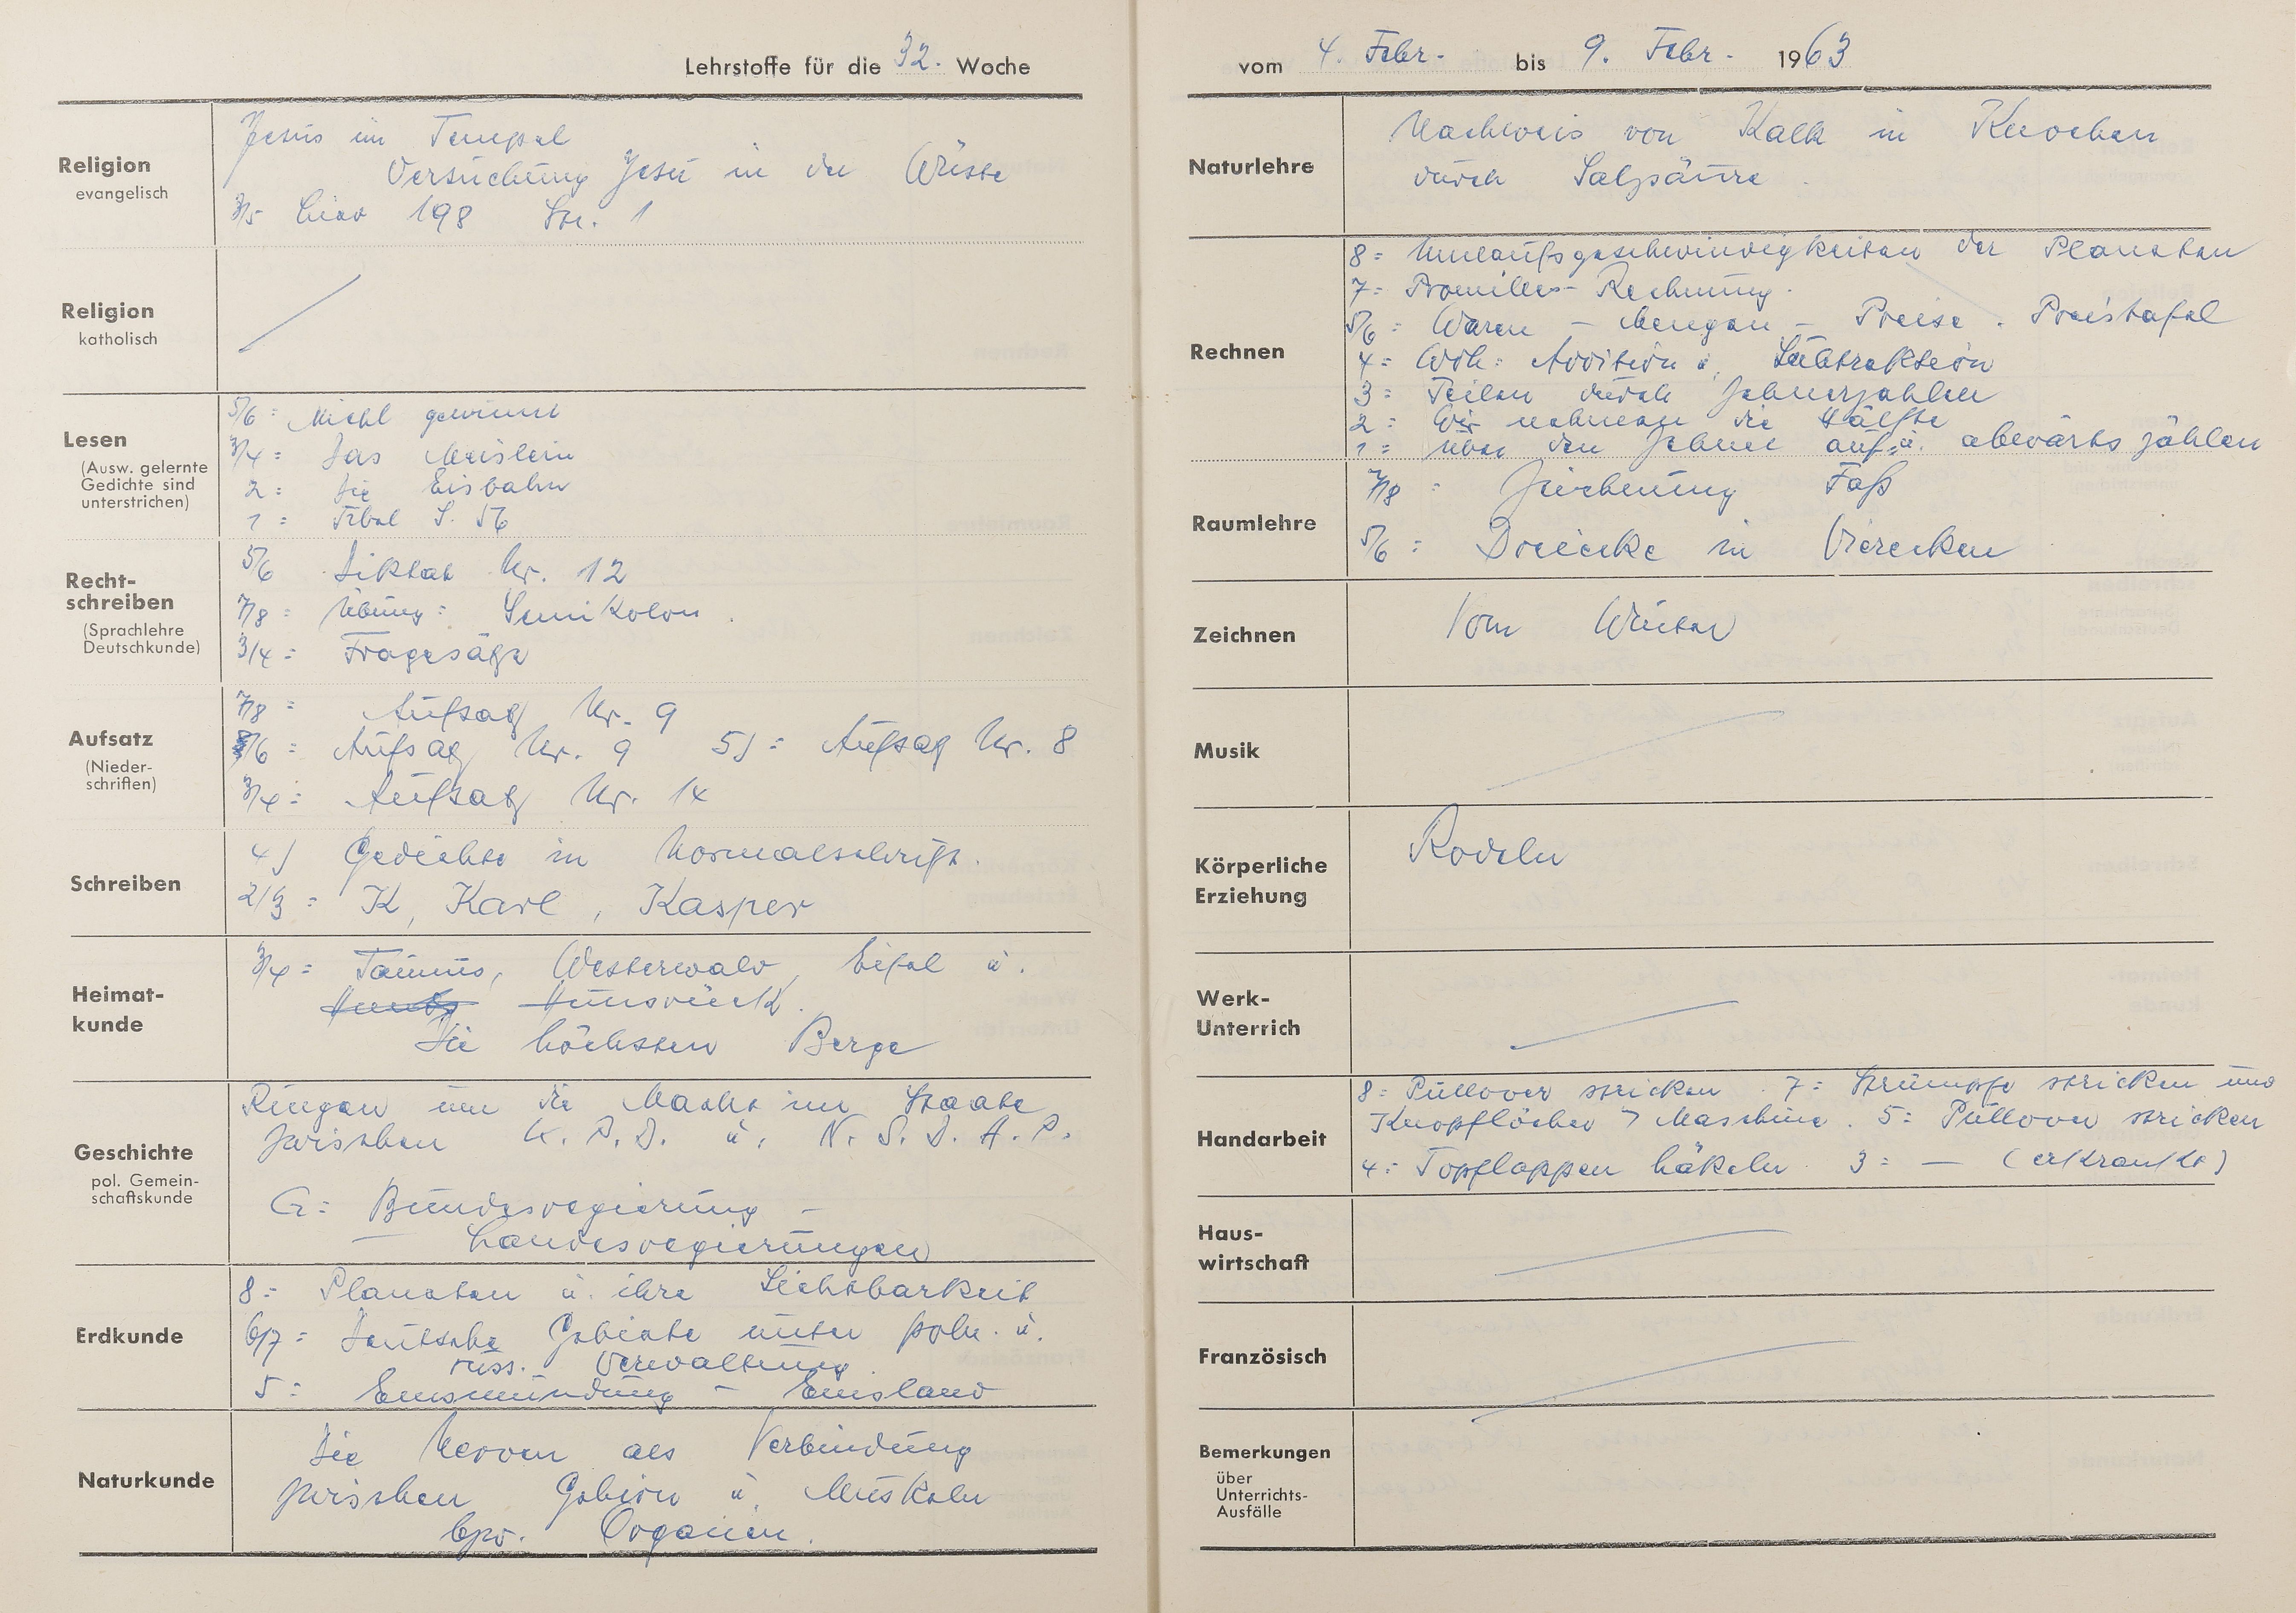 Lehrstoffe für die 32. Woche
Religion
evangelisch
Jesus im Tempel
Versuchung Jesu in der Wüste
3/5 Lied 198 Str. 1
Religion
katholisch
Lesen
(Ausw. gelernte
Gedichte sind
unterstrichen)
5/6 = Michl gewinnt
3/4 = Das Meislein
2 = Die Eisbahn
1 = Fibel S. 56
Recht-
schreiben
(Sprachlehre
Deutschkunde)
5/6 Diktat Nr. 12
7/8 = Übung: Semikolon.
3/4 = Fragesätze
Aufsatz
(Nieder-
schriften)
7/8 = Aufsatz Nr. 9
6 = Aufsatz Nr. 9 5) = Aufsatz Nr. 8
3/4 = Aufsatz Nr. 14
Schreiben
4) Gedichte in Normalschrift.
2/3 = K, Karl, Kasper
Heimat-
kunde
3/4 = Taunus, Westerwald, Eifel u.
Hunsrück.
Die höchsten Berge
Geschichte
pol. Gemein-
schaftskunde
Ringen um die Macht im Staate
zwischen K. P. D. u. N. S. D. A. P.
G = Bundesregierung –
Landesregierungen
Erdkunde
8 = Planeten u. ihre Sichtbarkeit
6/7 = Deutsche Gebiete unter poln. u.
russ. Verwaltung
5 = Emsmündung – Emsland
Naturkunde
Die Nerven als Verbindung
zwischen Gehirn u. Muskeln
bzw. Organen.
vom 4. Febr. bis 9. Febr. 1963
Naturlehre
Nachweis von Kalk in Knochen
durch Salzsäure.
Rechnen
8 = Umlaufsgeschwindigkeiten der Planeten
7 = Promille-Rechnung.
5/6 = Waren – Mengen – Preise. Preistafel
4 = Wdh: Addition u. Subtraktion
3 = Teilen durch Zehnerzahlen
2 = Wir nehmen die Hälfte
1 = über den Zehner auf- u. abwärts zählen
Raumlehre
7/8 = Zeichnung Faß
5/6 = Dreiecke in Vierecken
Zeichnen
Vom Winter
Musik
Körperliche
Erziehung
Rodeln
Werk-
Unterrich
Handarbeit
8 = Pullover stricken. 7 = Strümpfe stricken und
Knopflöcher Maschine. 5 = Pullover stricken
4 = Topflappen häkeln. 3 = — (erkrankt)
Haus-
wirtschaft
Französisch
Bemerkungen
über
Unterrichts-
Ausfälle